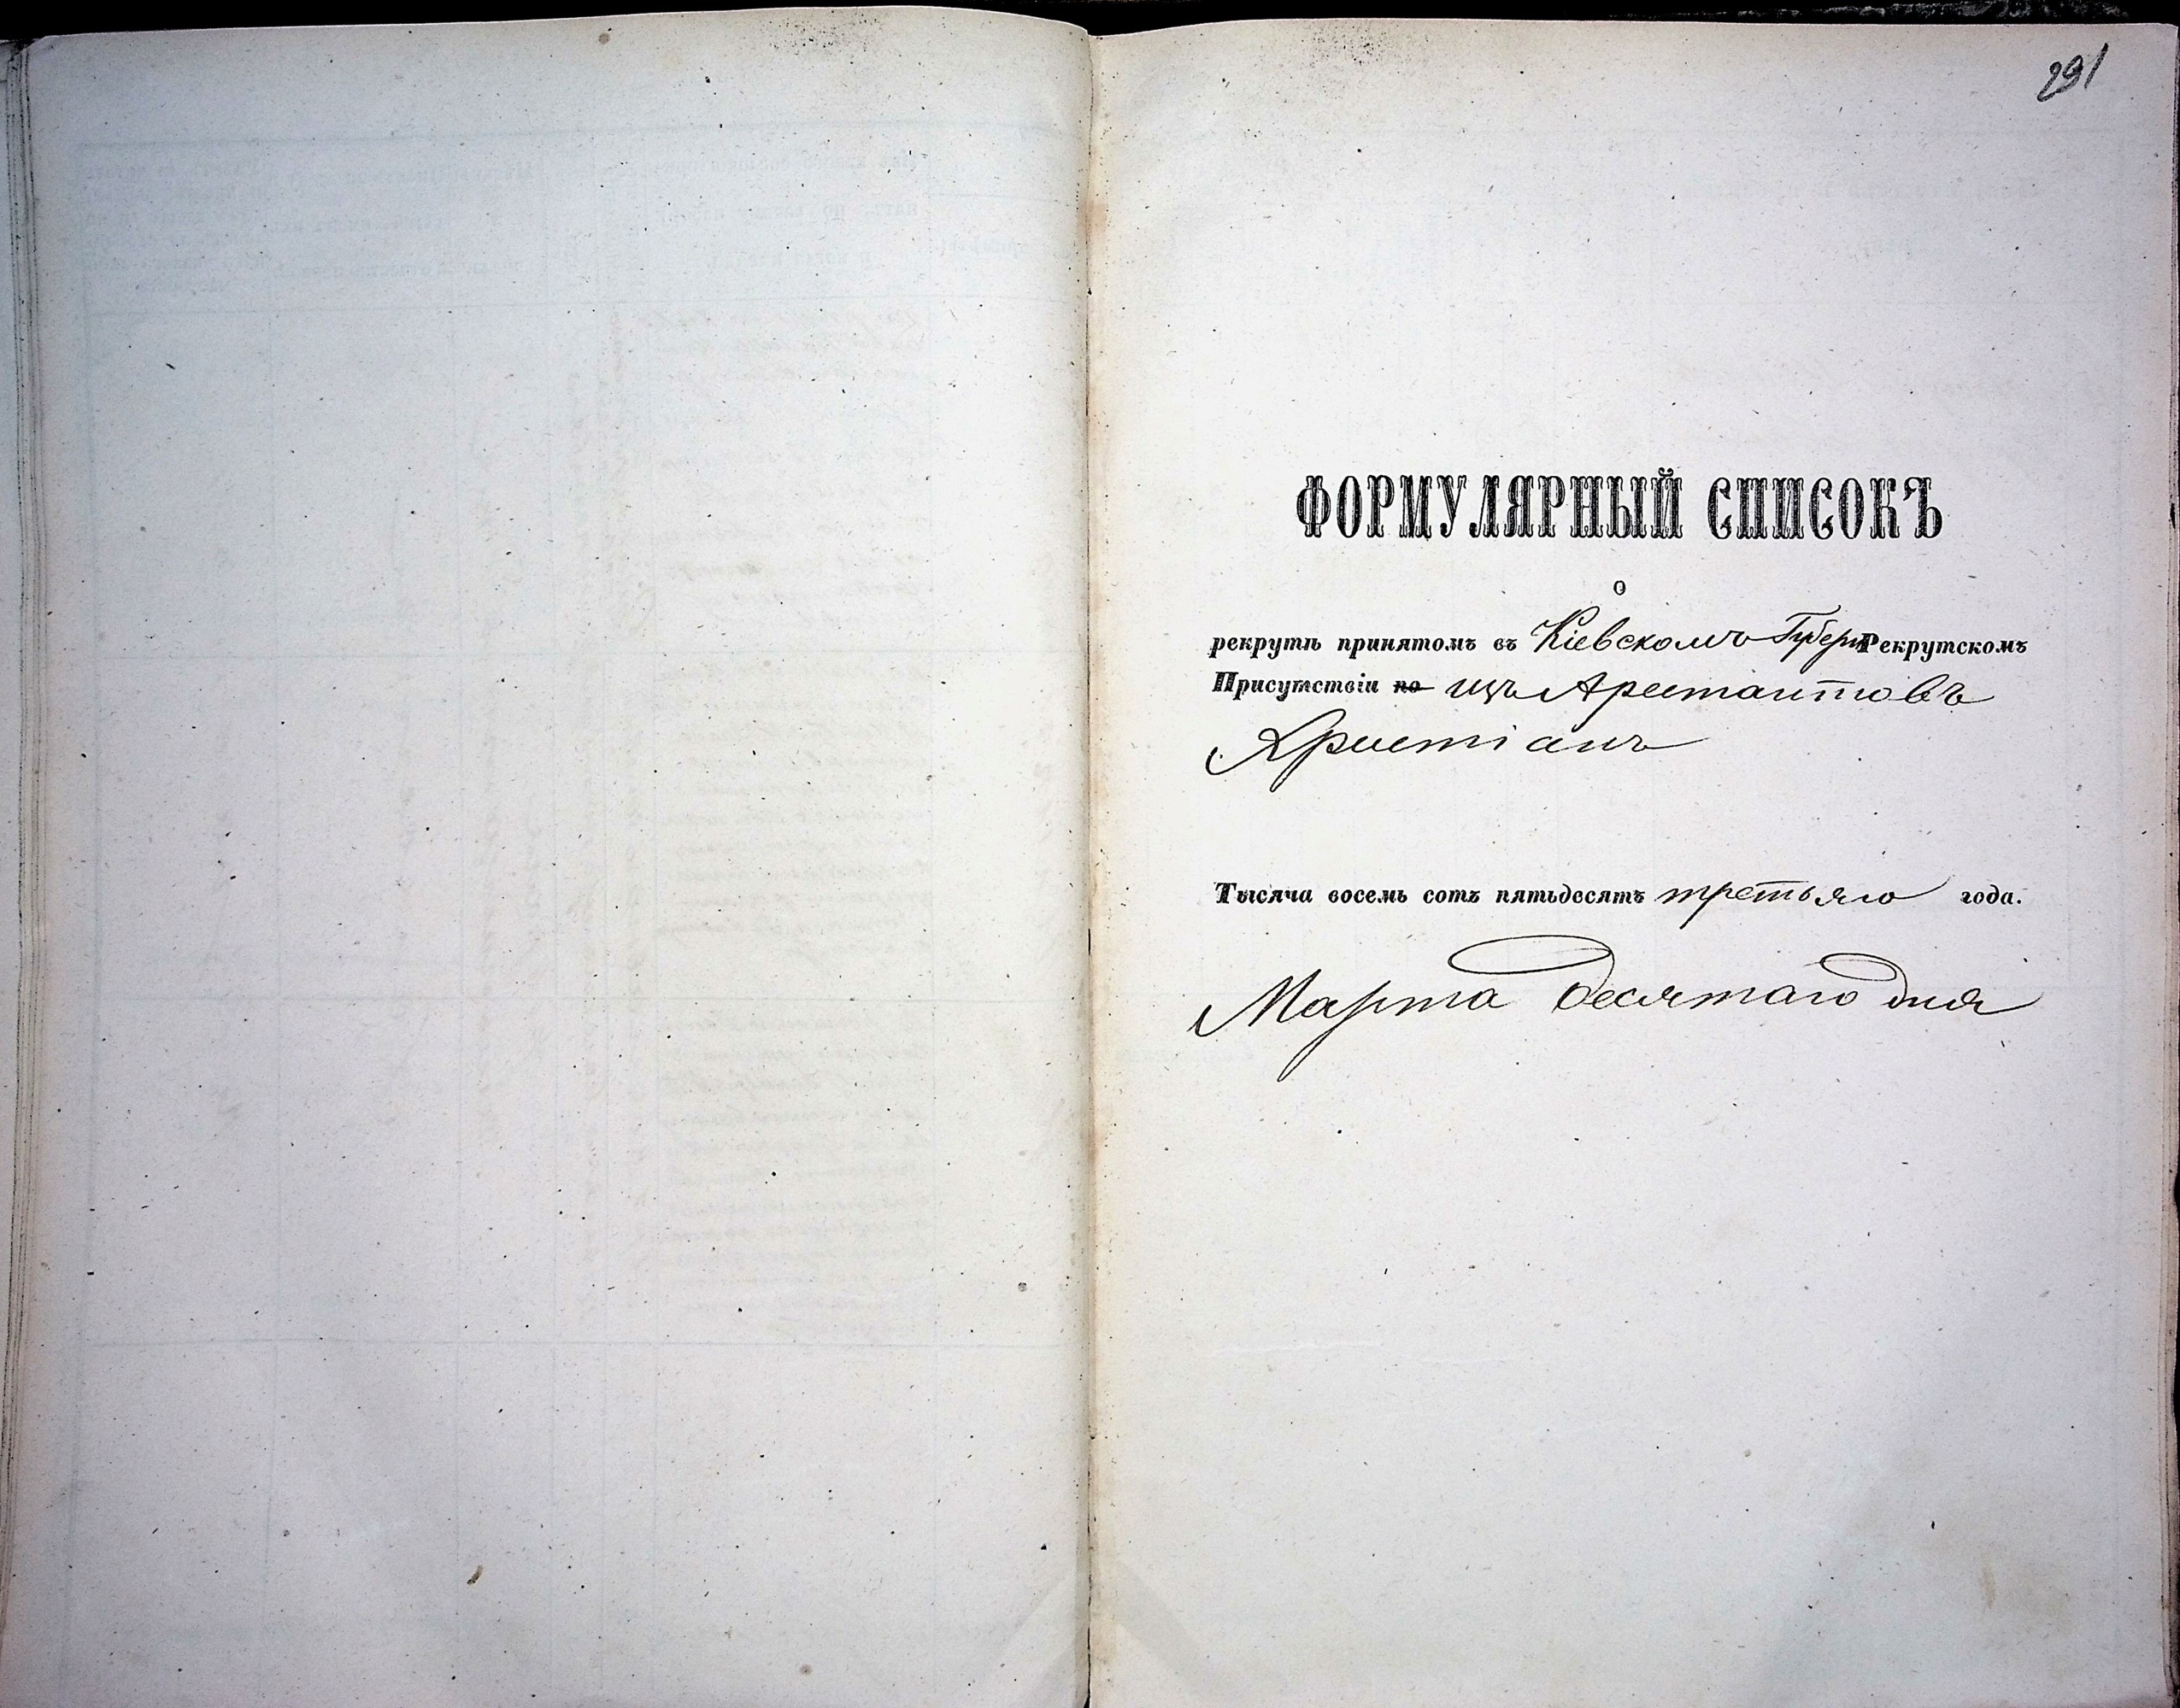 291
ФОРМУЛЯРНЫЙ СПИСОКЪ
о
рекрутѣ принятомъ въ Кіевскомъ Губерн Рекрутскомъ
Присутствіи по изъ Арестантовъ
Христіанъ
Тысяча восемь сотъ пятьдесятъ третьяго года.
Марта десятаго дня